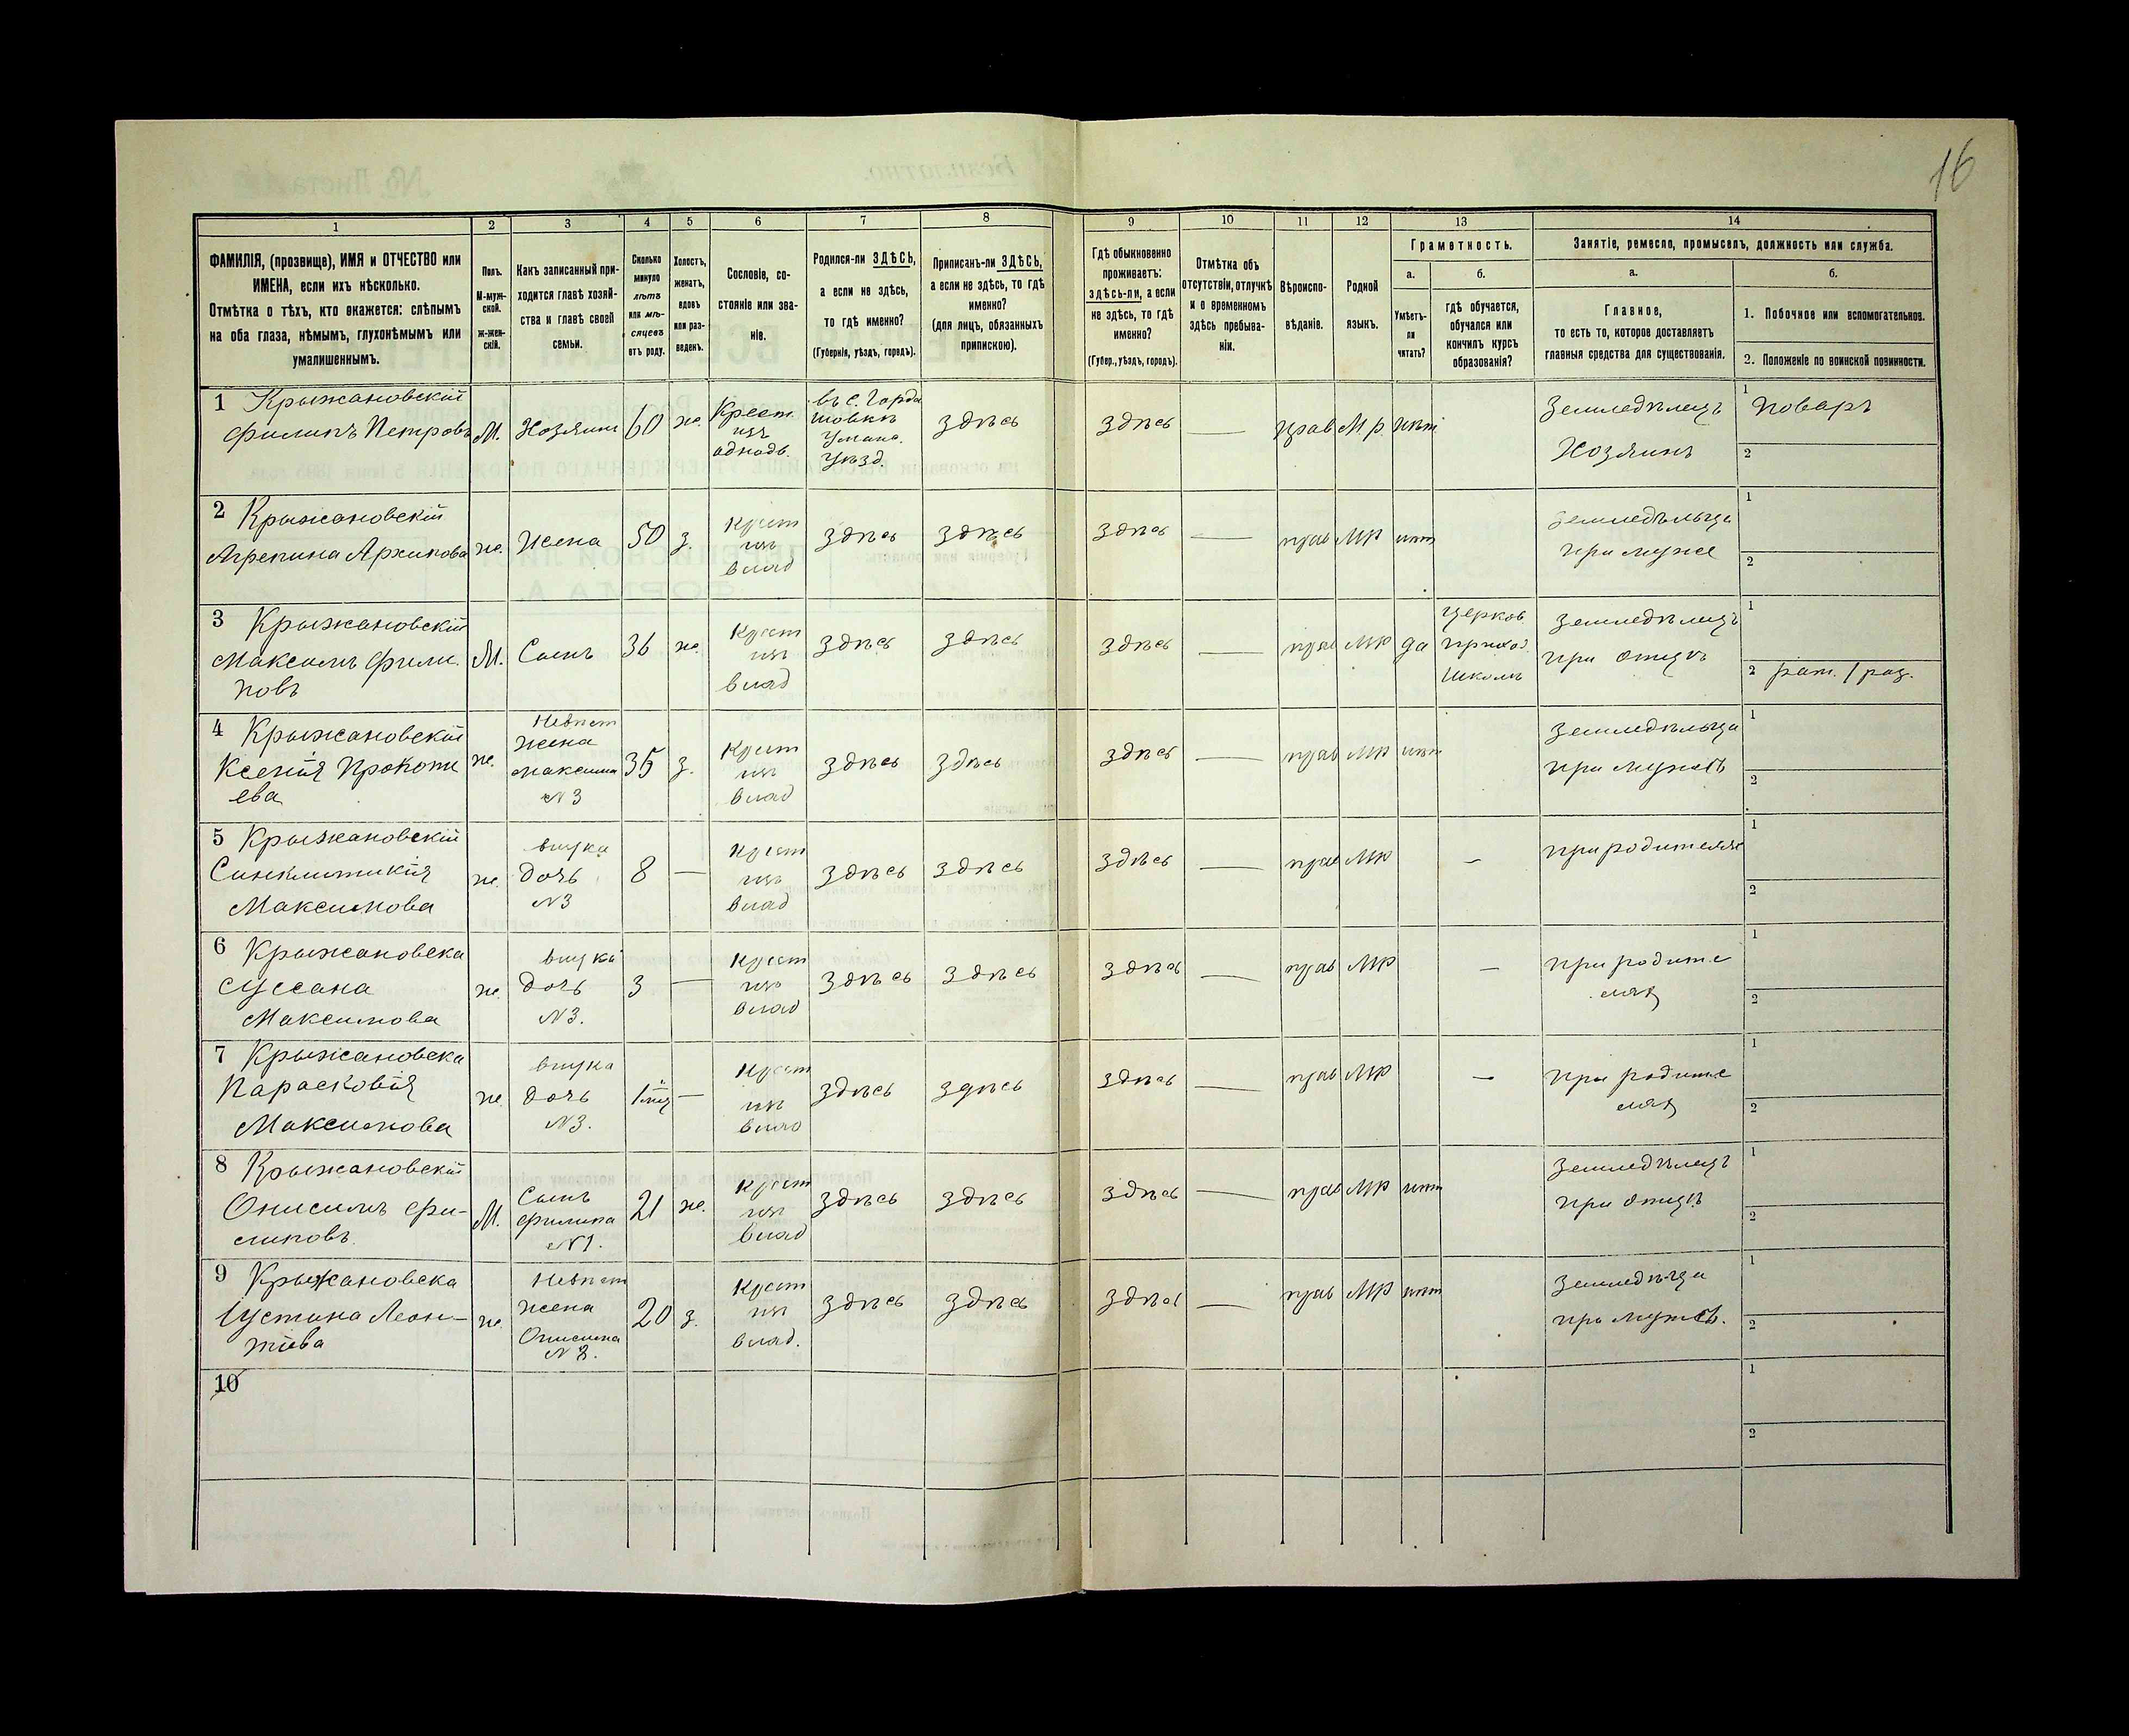 16
1 2 3 4 5 6 7 8 9 10 11 12 13 14
ФАМИЛІЯ, (прозвище), ИМЯ и ОТЧЕСТВО или
ИМЕНА, если ихъ нѣсколько.
Отмѣтка о тѣхъ, кто окажется: слѣпымъ
на оба глаза, нѣмымъ, глухонѣмымъ или
умалишеннымъ.
Полъ.
М-муж-
ской.
ж-жен-
скій.
Какъ записанный при-
ходится главѣ хозяй-
ства и главѣ своей
семьи.
Сколько
минуло
лѣтъ
или мѣ-
сяцевъ
отъ роду.
Холостъ,
женатъ,
вдовъ
или раз-
веденъ.
Сословіе, со-
стояніе или зва-
ніе.
Родился-ли ЗДѢСЬ,
а если не здѣсь,
то гдѣ именно?
(Губернія, уѣздъ, городъ).
Приписанъ-ли ЗДѢСЬ,
а если не здѣсь, то гдѣ
именно?
(для лицъ, обязанныхъ
припискою).
Гдѣ обыкновенно
проживаетъ:
здѣсь-ли, а если
не здѣсь, то гдѣ
именно?
(Губер., уѣздъ, городъ).
Отмѣтка объ
отсутствіи, отлучкѣ
и о временномъ
здѣсь пребыва-
ніи.
Вѣроиспо-
вѣданіе.
Родной
языкъ.
Грамотность.
а.
Умѣетъ-
ли
читать?
б.
гдѣ обучается,
обучался или
кончилъ курсъ
образованія?
Занятіе, ремесло, промыселъ, должность или служба.
а.
Главное,
то есть то, которое доставляетъ
главныя средства для существованія.
б.
1. Побочное или вспомогательное.
2. Положеніе по воинской повинности.
1 Крыжановскій
Филипъ Петровъ
М.
Хозяинъ
60
ж.
Крест.
изъ
однодв.
въ с. Горда
шовкѣ
Уманс.
Уѣзд.
здѣсь
здѣсь
—
прав
М.р.
нѣт
Земледѣлецъ
Хозяинъ
1 Поваръ
2
2 Крыжановскій
Агрепина Архипова
ж.
Жена
50
з.
Крест
из
влад
здѣсь
здѣсь
здѣсь
—
прав
МР
нѣт
земледѣлица
при муже
1
2
3 Крыжановскій
Максимъ Фили.
повъ
М.
Сынъ
36
ж.
Крест
из
влад
здѣсь
здѣсь
здѣсь
—
прав
МР
да
церков
приход.
школѣ
земледѣлецъ
при отцѣ
1
2 рат. 1 раз.
4 Крыжановскій
Ксенія Прокопи
ева
ж.
Невѣст
жена
максима
№3
35
з.
Крест
из
влад
здѣсь
здѣсь
здѣсь
—
прав
МР
нѣт
земледѣлица
при мужѣ
1
2
5 Крыжановскій
Синклитикія
Максимова
ж.
внука
дочь
№3
8
—
Крест
из
влад
здѣсь
здѣсь
здѣсь
—
прав
МР
—
при родителях
1
2
6 Крыжановска
Сусана
Максимова
ж.
внука
дочь
№3.
3
—
Крест
из
влад
здѣсь
здѣсь
здѣсь
—
прав
МР
—
при родите
лях
1
2
7 Крыжановска
Парасковія
Максимова
ж.
внука
дочь
№3.
—
Крест
из
влад
здѣсь
здѣсь
здѣсь
—
прав
МР
—
при родите
лях
1
2
8 Крыжановскій
Онисимъ Фи-
липовъ.
М.
Сынъ
филипа
№1.
21
ж.
Крест
из
влад
здѣсь
здѣсь
здѣсь
—
прав
МР
нѣт
Земледѣлецъ
при отцѣ
1
2
9 Крыжановска
Іустина Леон-
тіева
ж.
Невѣст
жена
Онисима
№ 8.
20
з.
Крест
из
влад.
здѣсь
здѣсь
здѣсь
—
прав
МР
нѣт
при мужѣ.
1
2
10
1
2